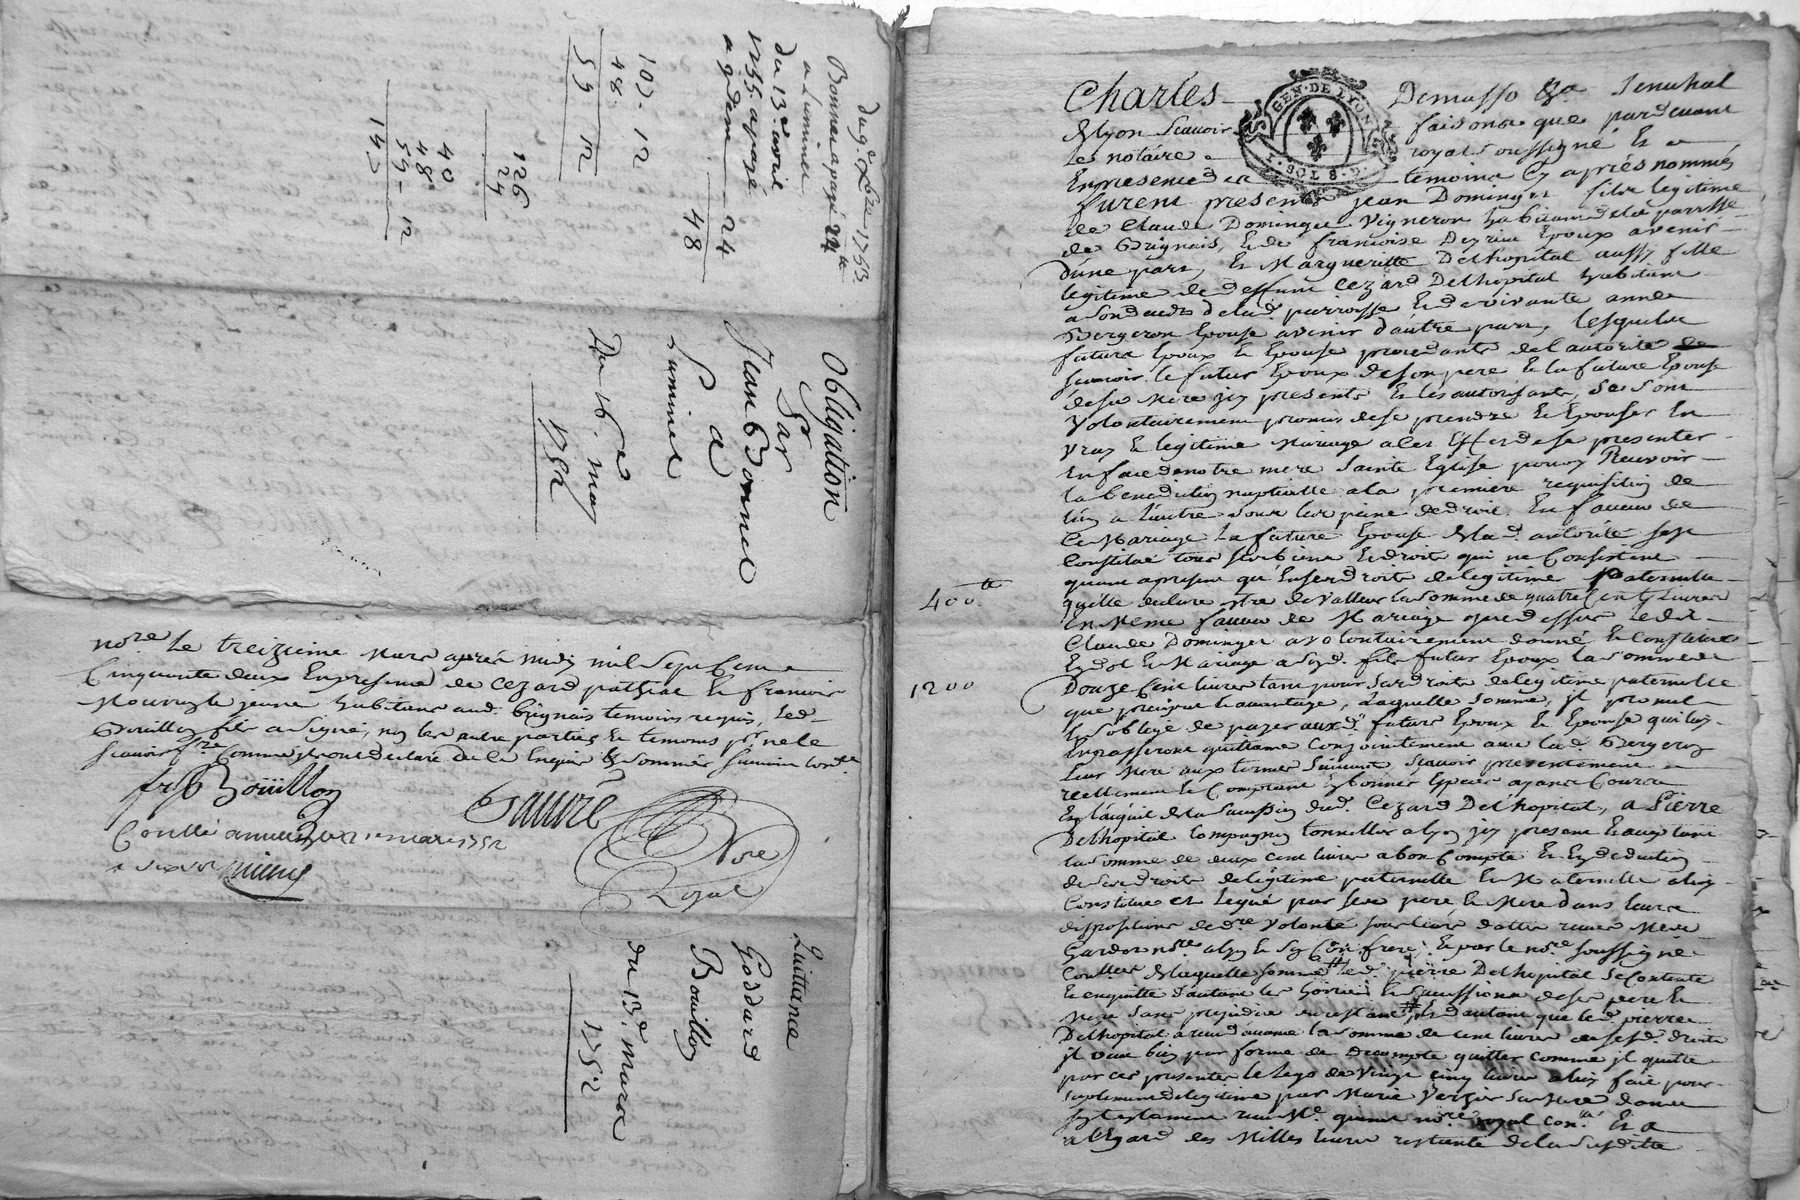 du 9e xbre 1753
Bonnel a payé 24 lt
a Luminel
du 13e avril
1755 a payé
a ydem 24
48
107 - 12
48
59 12
126
24
40
48
59 - 12
147
Obligation
Par
Sr Jean Bonnel
a
Luminel
Du 16e may
1752
nore Le treizieme Mars aprés midy mil sept Cent
Cinquante deux En presence de Cezard pathiat Et francois
jeune habitans aud. Brignais temoins requis, Led.
Bouillon fils a signé, non les autre parties Et temoins pr ne le
scavoir faire Comme ils ont declaré de ce Enquis & sommés
frs Bouillon
Gauvré
Nore
Royal
Quittance
Goddard
Bouillon
du 13e. mars
1752
Charles Demasso &a Senechal
GEN. DE LYON
1. SOL 8. D.
de Lyon Scavoir faisons que pardevant
Le notaire royal soussigné Et
En presence des temoins cy aprés nommés
furent presents jean Dominger fils legitime
de Claude Dominger Vigneron habitant de la parroisse
de Brignais, Et de francoise Epoux avenir
d'une part, Et Margueritte Delhopital aussy fille
legitime de deffunt Cezard Delhopital habitant
de lad. parroisse Et de vivante anne
Bergeron Epouse avenir d'autre part, lesquels
futurs Epoux Et Epouse procedants de l'autorité de
scavoir le futur Epoux de son pere Et la future Epouse
de sa Mere icy presents Et les autorisants, se sont
Volontairement promis de se prendre Et Epouser En
vray Et legitime Mariage a cet Effet de se presenter
En face de notre mere Sainte Eglise pour y Recevoir
la benediction nuptialle a la premiere requisition de
l'un a l'autre sous les peines de droit, En faveur de
Ce Mariage La future Epouse de lad. autorité s'est
Constitué tous ses biens Et droits qui ne Consistent
quant apresent qu'En ses droits de legitime Paternelle
400 lt
qu'elle declare Etre de Valleur la somme de quatre Cent Livres
En Meme faveur de Mariage que dessus Led.
Claude Dominger a volontairement donné Et Constitué
En dot Et Mariage a sond. fils futur Epoux la somme de
1200
Douze Cent livres tant pour ses droits de legitime paternelle
que pour avantage, Laquelle somme, il promet
Et s'oblige de payer auxd. futurs Epoux Et Epouse qui luy
En passeront quittance conjointement avec lad. Bergeron
Leur Mere aux termes suivants Scavoir presentement
reellement Et Comptant En bonnes Especes ayants Cours
En l'acquit de la succession dud. Cezard Delhopital, a Pierre
Delhopital Compagnon tonnellier a Lyon icy present Et acceptant
la somme de deux cent livres a bon Compte Et En deduction
de ses droits de legitime paternelle Et Maternelle a luy
Constitués et legué par ses pere Et Mere dans leurs
dispositions de dre volonté
Gardon nore
Controllé De laquelle somme led. pierre Delhopital se Contente
Et En quitte d'autant les hoiries Et successions de ses pere Et
Mere sans prejudice du restant d'autant que led. pierre
Delhopital a reçu d'avance la somme de cent livres de sesd. droits
il veut bien par forme de decompte quitter comme il quitte
par ces presentes le legs de Vingt Cinq livres a luy fait pour
suplement de legitime par Marie Verzier sa Mere dans
son testament reçu Me. nore royal Et a
a l'Egard des Milles livres restante de la susditte